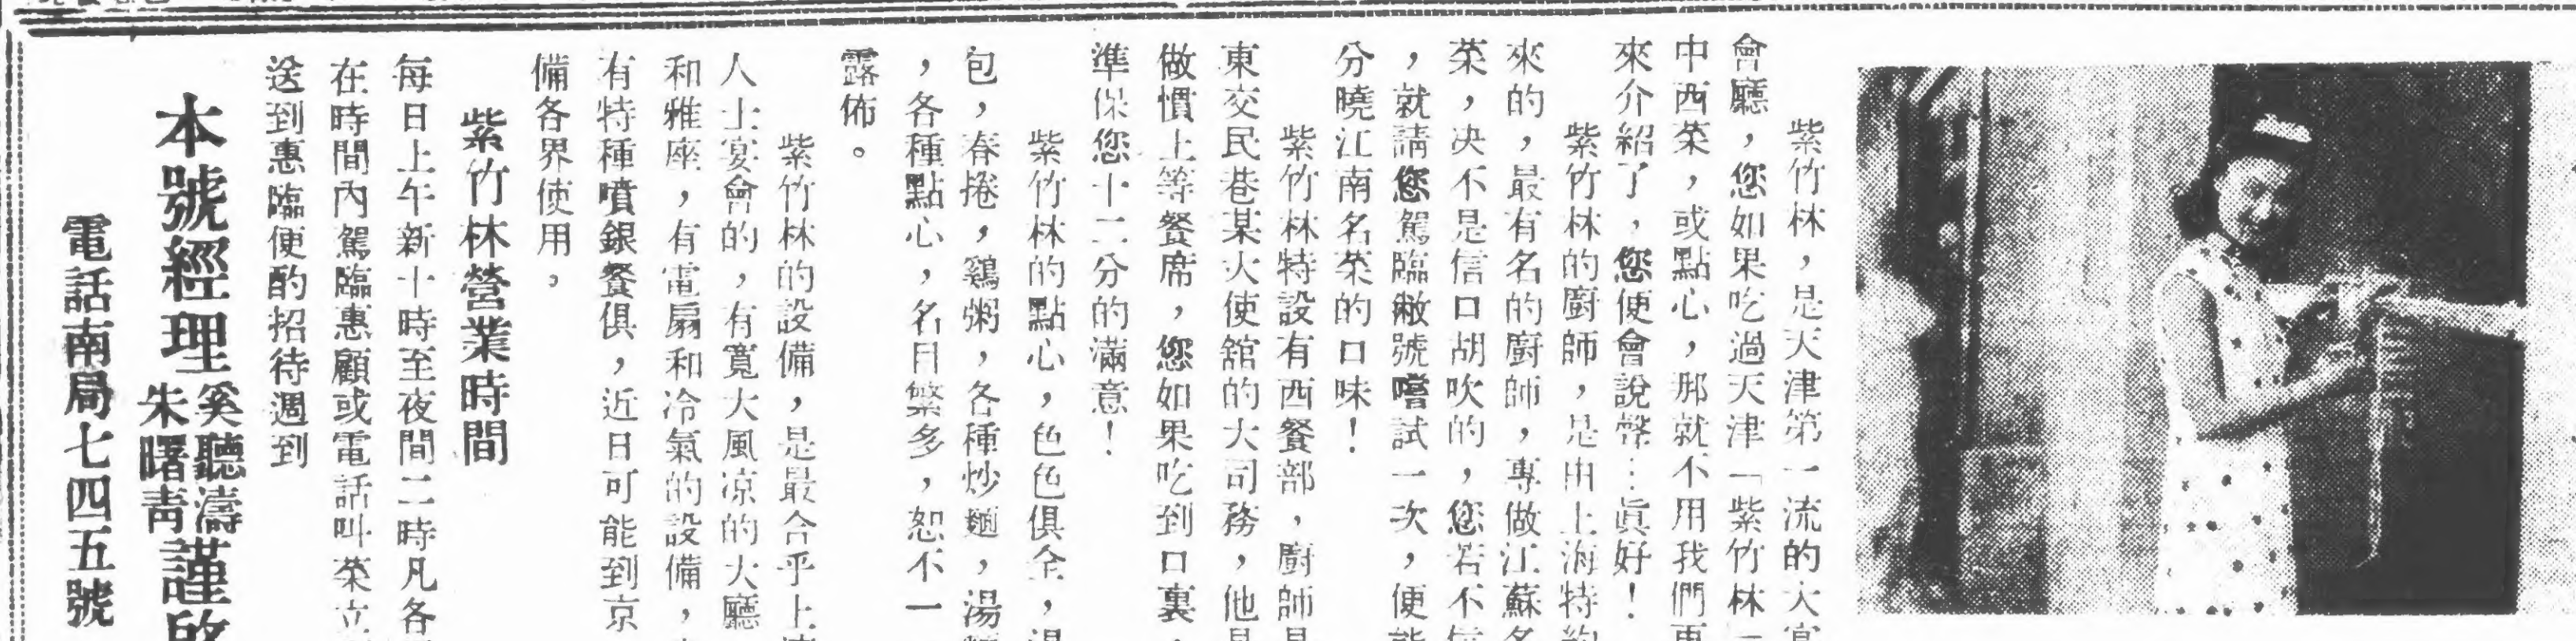 紫竹林，是天津第一流的大宴
會廳，您如果吃過天津「紫竹林」
中西菜，或點心，那就不用我們再
來介紹了，您便會說聲…眞好！
紫竹林的廚師，是由上海特約
來的，最有名的廚師，專做江蘇名
菜，决不是信口胡吹的，您若不信
，就請您駕臨敝號嚐試一次，便能
分曉江南名菜的口味！
紫竹林特設有西餐部，廚師是
東交民巷某大使舘的大司務，他是
做慣上等餐席，您如果吃到口裏，
準保您十二分的滿意！
紫竹林的點心，色色俱全，湯
包，春捲，鷄粥，各種炒麵，湯麵
，各種點心，名目繁多，恕不一
露佈。
紫竹林的設備，是最合乎上流
人士宴會的，有寬大風凉的大廳
和雅座，有電扇和冷氣的設備，
有特種噴銀餐俱，近日可能到京
備各界使用，
紫竹林營業時間
每日上午新十時至夜間二時凡各
在時間內駕臨惠顧或電話叫菜立
送到惠臨便酌招待週到
本號經理奚聽濤朱曙靑謹啟
電話南局七四五號